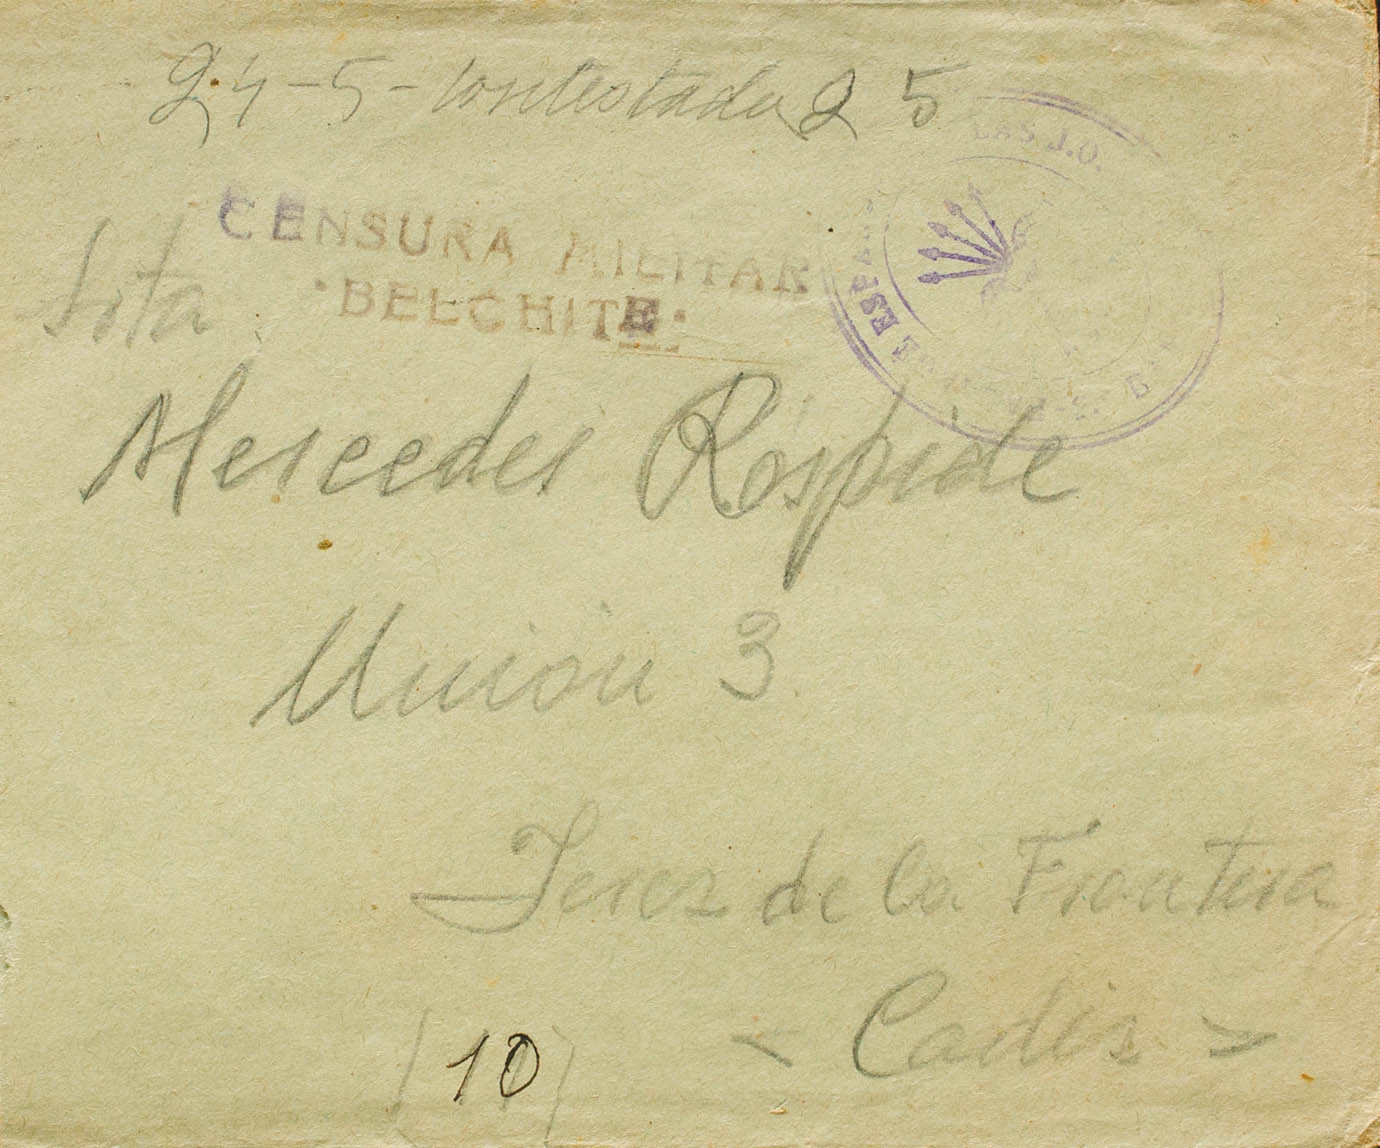 24-5-contestada 25
LAS J.O.
ESPAÑ
CENSURA MILITAR
·BELCHITE·
Srta
Mercedes Rospide
Union 3
Jerez de la Frontera
< Cadiz >
(10)